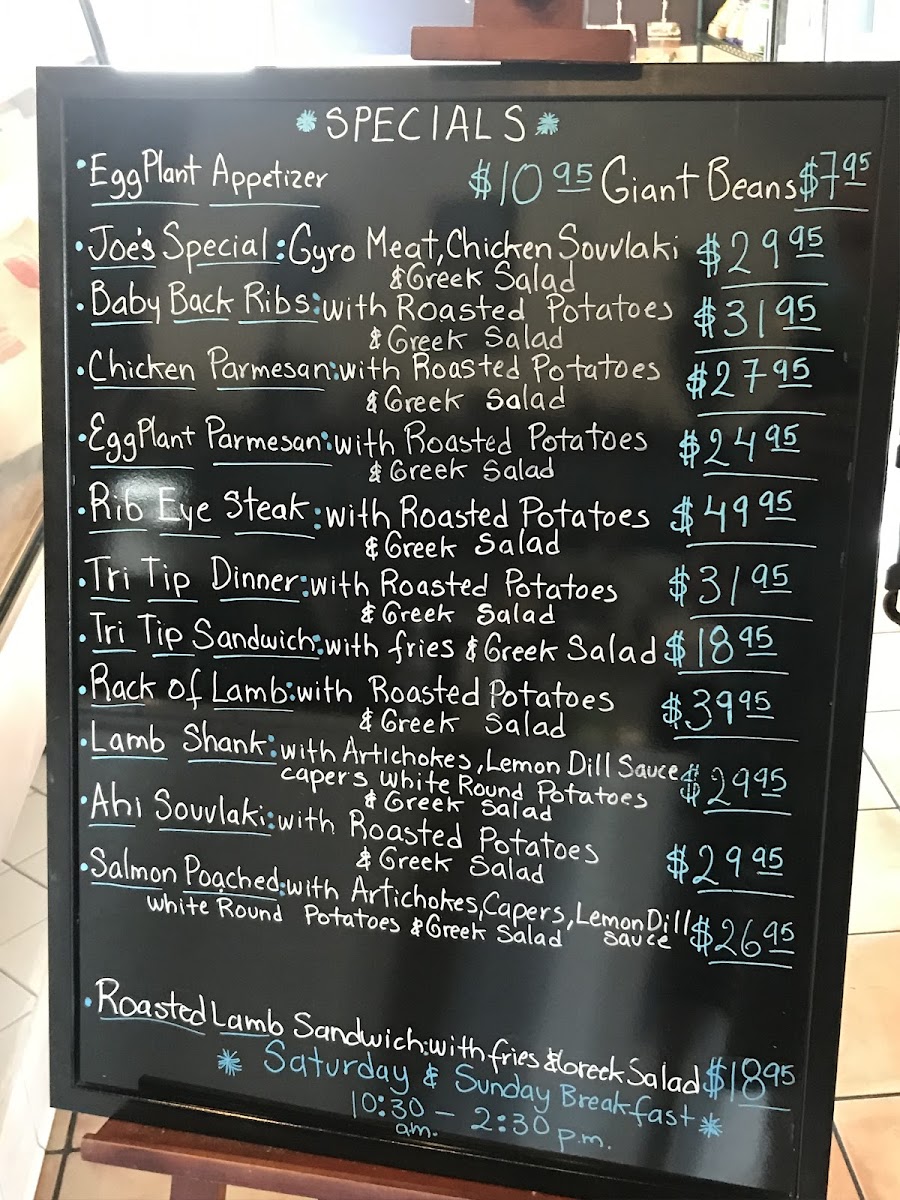 *SPECIALS*
•EggPlant Appetizer $10.95 Giant Beans $7.95
•Joe's Special: Gyro Meat, Chicken Souvlaki $29.95
& Greek Salad
•Baby Back Ribs: with Roasted Potatoes $31.95
& Greek Salad
•Chicken Parmesan: with Roasted Potatoes $27.95
& Greek Salad
•EggPlant Parmesan: with Roasted Potatoes $24.95
& Greek Salad
•Rib Eye Steak: with Roasted Potatoes $49.95
& Greek Salad
•Tri Tip Dinner: with Roasted Potatoes $31.95
& Greek Salad
•Tri Tip Sandwich: with fries & Greek Salad $18.95
•Rack of Lamb: with Roasted Potatoes $39.95
& Greek Salad
•Lamb Shank: with Artichokes, Lemon Dill Sauce $29.95
capers white Round Potatoes
& Greek Salad
•Ahi Souvlaki: with Roasted Potatoes $29.95
& Greek Salad
•Salmon Poached: with Artichokes, Capers, Lemon Dill $26.95
white Round Potatoes & Greek Salad sauce
•Roasted Lamb Sandwich: with fries & Greek Salad $18.95
* Saturday & Sunday Breakfast *
10:30 – 2:30 p.m.
am.